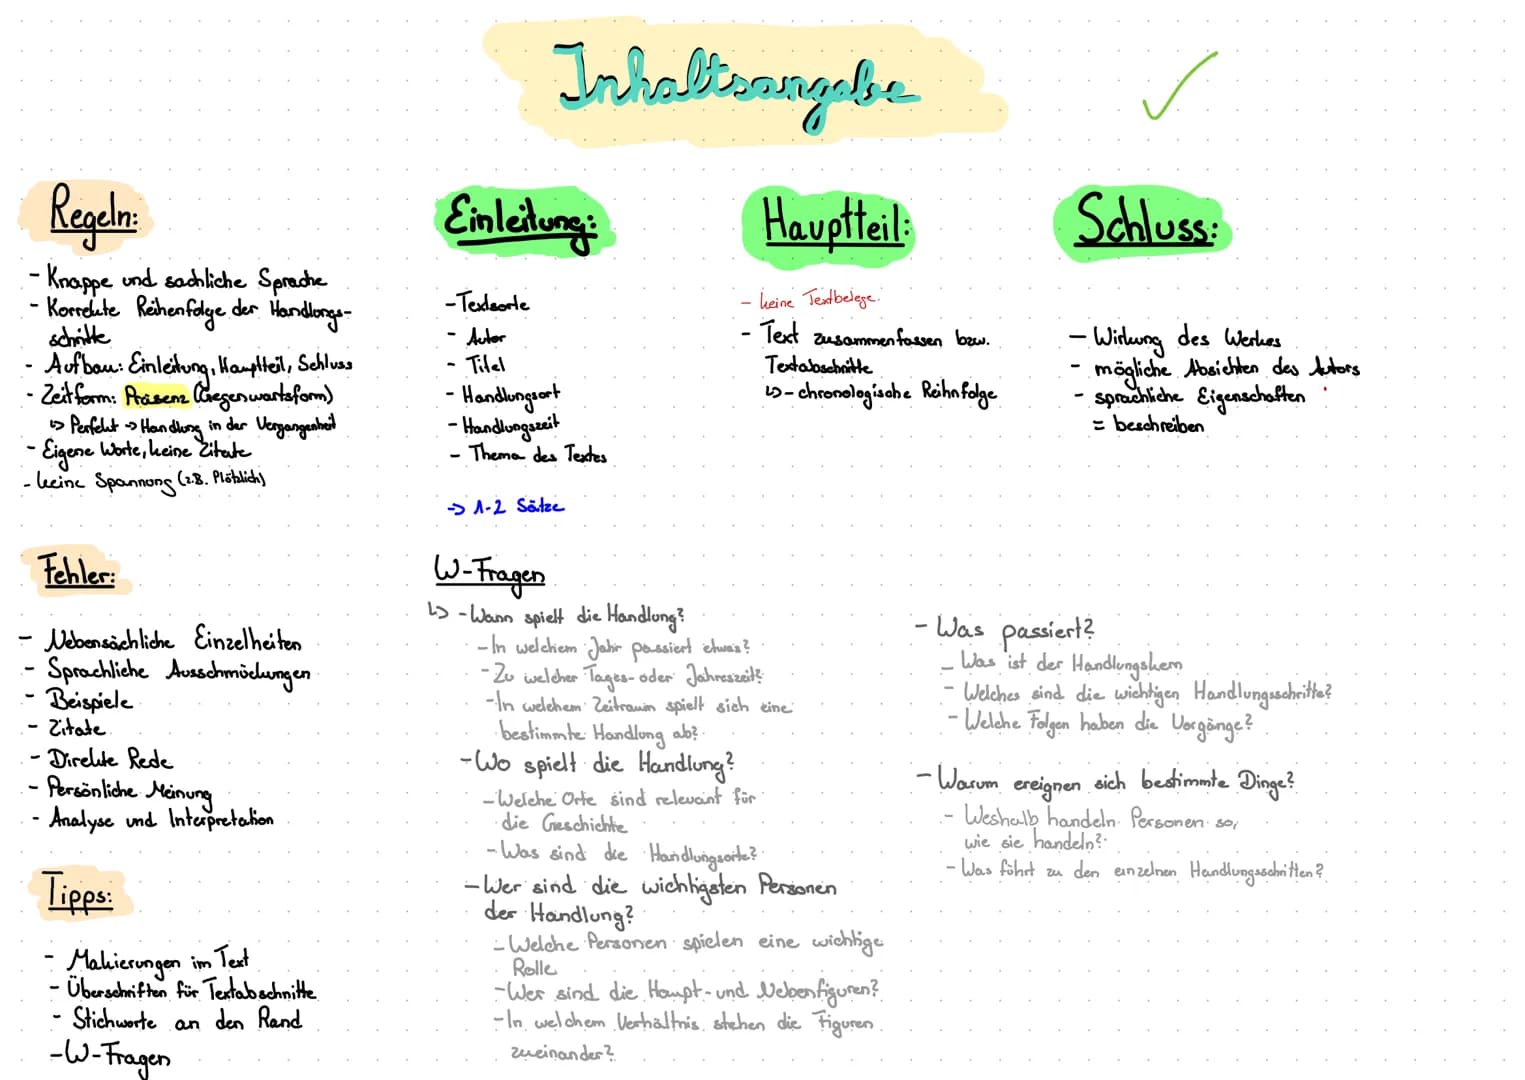 Inhaltsangabe
Regeln:
- Knappe und sachliche Sprache
- Korrekte Reihenfolge der Handlungs-
schritte
- Aufbau: Einleitung, Hauptteil, Schluss
- Zeitform: Präsenz (Gegenwartsform)
↳ Perfekt → Handlung in der Vergangenheit
- Eigene Worte, keine Zitate
- keine Spannung (z.B. Plötzlich)
Fehler:
- Nebensächliche Einzelheiten
- Sprachliche Ausschmückungen
- Beispiele
- Zitate
- Direkte Rede
- Persönliche Meinung
- Analyse und Interpretation
Tipps:
- Makierungen im Text
- Überschriften für Textabschnitte
- Stichworte an den Rand
- W-Fragen
Einleitung:
- Textsorte
- Autor
- Titel
- Handlungsort
- Handlungszeit
- Thema des Textes
→ 1-2 Sätze
Hauptteil:
- keine Textbelege.
- Text zusammenfassen bzw.
Textabschnitte
↳ - chronologische Reihnfolge
Schluss:
- Wirkung des Werkes
- mögliche Absichten des Autors
- sprachliche Eigenschaften
= beschreiben
W-Fragen
↳ - Wann spielt die Handlung?
- In welchem Jahr passiert etwas?
- Zu welcher Tages- oder Jahreszeit?
- In welchem Zeitraum spielt sich eine
bestimmte Handlung ab?
- Wo spielt die Handlung?
- Welche Orte sind relevant für
die Geschichte
- Was sind die Handlungsorte?
- Wer sind die wichtigsten Personen
der Handlung?
- Welche Personen spielen eine wichtige
Rolle
- Wer sind die Haupt- und Nebenfiguren?
- In welchem Verhältnis stehen die Figuren
zueinander?
- Was passiert?
- Was ist der Handlungskern
- Welches sind die wichtigen Handlungsschritte?
- Welche Folgen haben die Vorgänge?
- Warum ereignen sich bestimmte Dinge?
- Weshalb handeln Personen so,
wie sie handeln?
- Was führt zu den einzelnen Handlungsschritten?